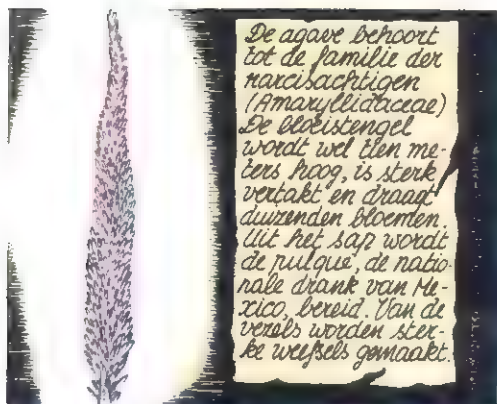 De agave behoort
tot de familie der
narcisachtigen
(Amaryllidaceae)
De bloeistengel
wordt wel tien me-
ters hoog, is sterk
vertakt en draagt
duizenden bloemen.
Uit het sap wordt
de pulque, de natio-
nale drank van Me-
xico, bereid. Van de
vezels worden ster-
ke weefsels gemaakt.